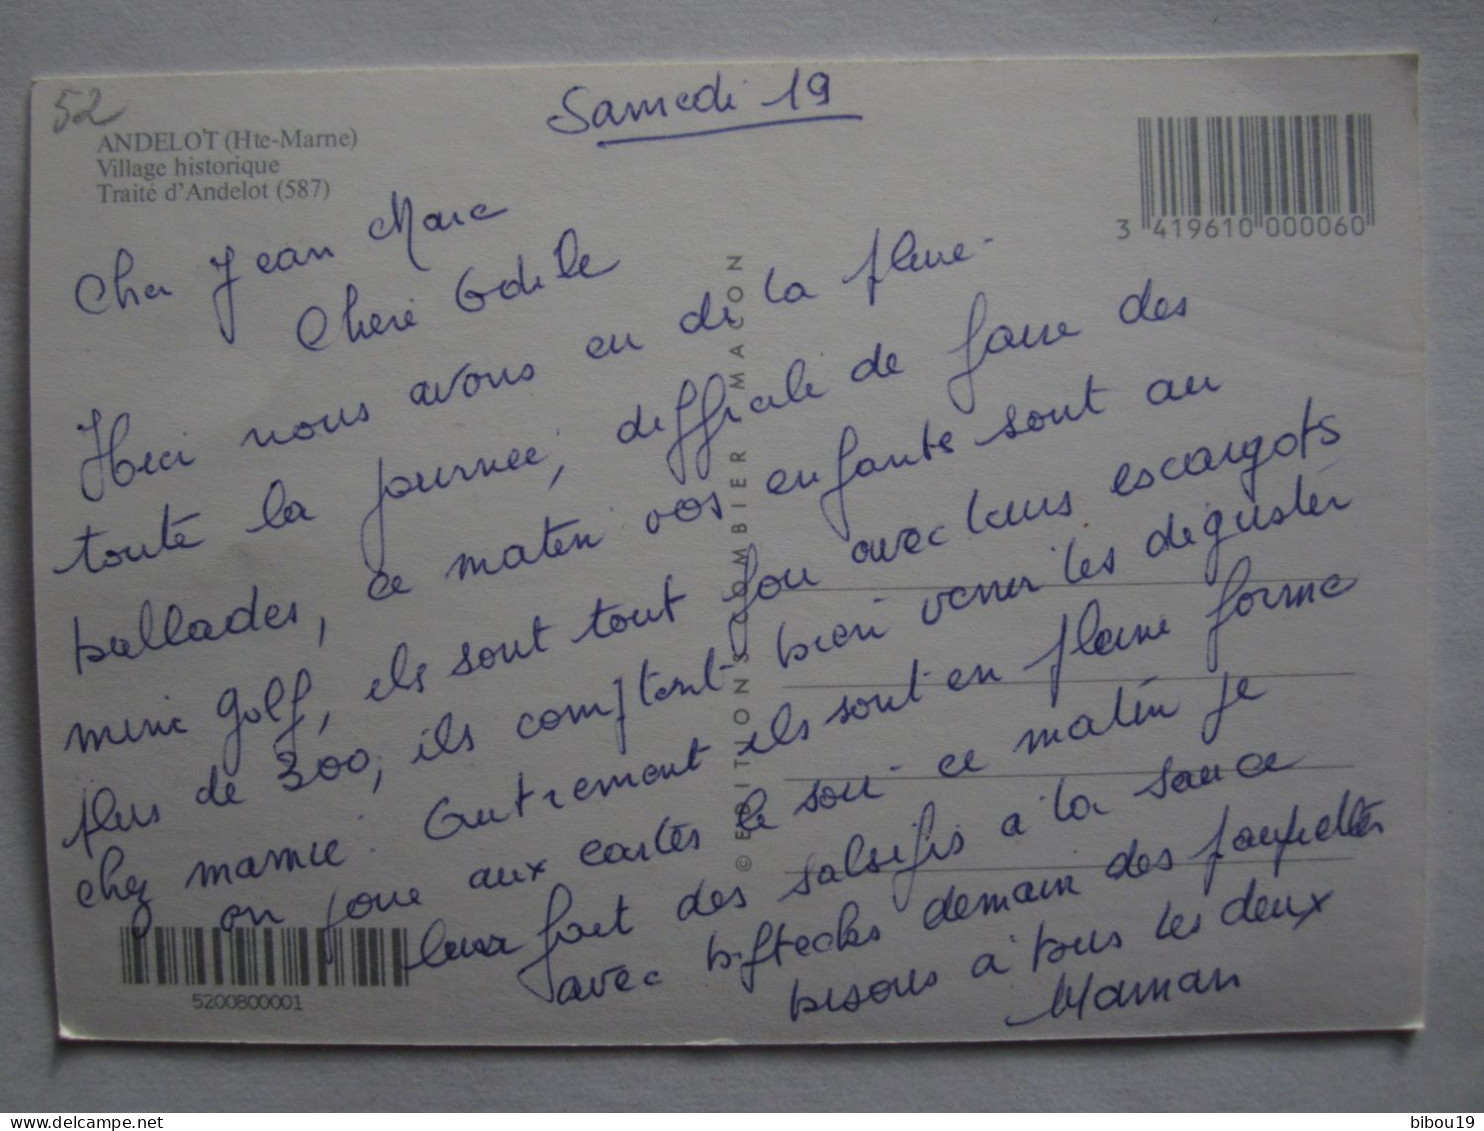 52
Samedi 19
ANDELOT (Hte-Marne)
Village historique
Traité d'Andelot (587)
3 419610 000060
Cher Jean Marc
Cherie Odile
Hier nous avons eu de la pluie
toute la journée, difficile de faire des
ballades, ce matin vos enfants sont au
mini golf, ils sont tout fou avec leurs escargots
plus de 300, ils comptent bien venir les déguster
chez mamie. Autrement ils sont en pleine forme
on joue aux cartes le soir ce matin je
leur fait des salsifis a la sauce
avec biftecks demain des paupiettes
bisous à tous les deux
Maman
© EDITIONS COMBIER MACON
5200800001
bibou19